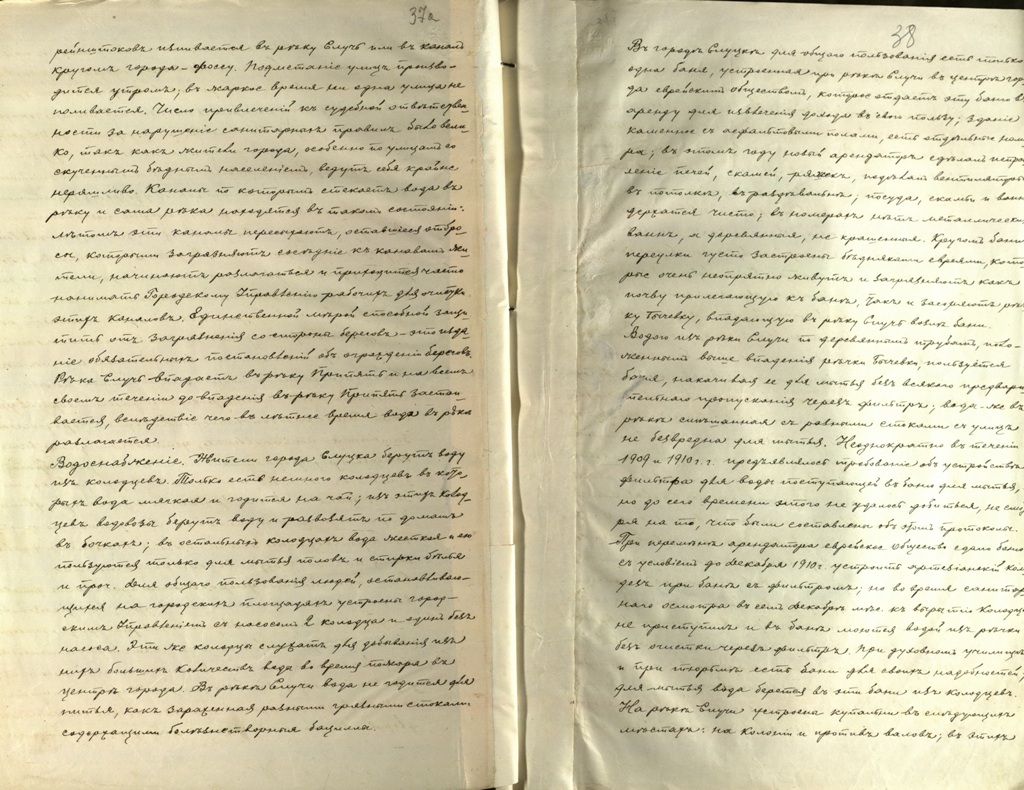 37а
рейнштоковъ изливается въ рѣку Случь или въ каналъ
кругомъ города – фоссу. Подметаніе улицъ произво-
дится утромъ; въ жаркое время ни одна улица не
поливается. Число привлеченій къ судебной отвѣтствен-
ности за нарушеніе санитарныхъ правилъ было вели-
ко, такъ какъ жители города, особенно по улицамъ со
скученнымъ бѣднымъ населеніемъ, ведутъ себя крайне
неряшливо. Каналы по которымъ стекаетъ вода въ
рѣку и сама рѣка находятся въ такомъ состояніи:
лѣтомъ эти каналы пересыхаютъ, оставшіеся отбро-
сы, которыми загрязняютъ сосѣдніе къ канавамъ жи-
тели, начинаютъ разлагаться и приходится часто
нанимать Городскому Управленію рабочихъ для очистки
этихъ каналовъ. Единственной мѣрой способной защи-
тить отъ загрязненія со стороны береговъ – это изда-
ніе обязательныхъ постановленій объ огражденіи береговъ.
Рѣка Случь впадаетъ въ рѣку Припять и на всемъ
своемъ теченіи до впаденія въ рѣку Припять застаи-
вается, вслѣдствіе чего въ лѣтнее время вода въ рѣкѣ
разлагается.
Водоснабженіе. Жители города Слуцка берутъ воду
изъ колодцевъ. Только есть немного колодцевъ въ кото-
рыхъ вода мягкая и годится на чай; изъ этихъ колод-
цевъ водовозы берутъ воду и развозятъ по домамъ
въ бочкахъ; въ остальныхъ колодцахъ вода жесткая и ею
пользуются только для мытья половъ и стирки бѣлья
и проч. Для общаго пользованія людей, останавливаю-
щихся на городскихъ площадяхъ устроены город-
скимъ Управленіемъ съ насосомъ 2 колодца и одинъ безъ
насоса. Эти же колодцы служатъ для добыванія изъ
нихъ большихъ количествъ воды во время пожара въ
центрѣ города. Въ рѣкѣ Случи вода не годится для
питья, какъ зараженная разными грязными стоками
содержащими болѣзнетворныя бациллы.
38
Въ городѣ Слуцкѣ для общаго пользованія есть только
одна баня, устроенная при рѣкѣ Случи въ центрѣ горо-
да еврейскимъ обществомъ, которое отдаетъ эту баню въ
аренду для извлеченія дохода въ свою пользу; зданіе
каменное съ асфальтовыми полами, есть отдѣльные номе-
ра; въ этомъ году новый арендаторъ сдѣлалъ исправ-
леніе печей, скамей, ряжекъ, подѣлалъ вентиляторы
въ потолкѣ, въ раздѣвальнѣ; посуда, скамьи и ванны
держатся чисто; въ номерахъ нѣтъ металлическихъ
ваннъ, а деревянныя, не крашенныя. Кругомъ бани
переулки густо застроены бѣдняками евреями, кото-
рые очень неопрятно живутъ и загрязняютъ какъ
почву прилегающую къ банѣ, такъ и засоряютъ рѣч-
ку Бычевку, впадающую въ рѣку Случь возлѣ бани.
Водою изъ рѣки Случи по деревяннымъ трубамъ, поло-
женнымъ выше впаденія рѣчки Бычевки, пользуется
баня, накачивая ее для мытья безъ всякаго предвари-
тельнаго пропусканія черезъ фильтръ; вода-же въ
рѣкѣ смѣшанная съ разными стоками съ улицъ
не безвредна для мытья. Неоднократно въ теченіи
1909 и 1910 г.г. предъявлялось требованіе объ устройствѣ
фильтра для воды поступающей въ баню для мытья,
но до сего времени этого не удалось добиться, не смот-
ря на то, что были составлены объ этомъ протоколы.
При перемѣнѣ арендатора еврейское Общество сдало баню
съ условіемъ до декабря 1910 г. устроить артезіанскій коло-
децъ при банѣ съ фильтромъ; но во время санитар-
наго осмотра въ семъ декабрѣ м-цѣ къ вырытію колодца
не приступили и въ банѣ моются водой изъ рѣчки
безъ очистки черезъ фильтръ. При духовномъ училищѣ
и при тюрьмѣ есть бани для своихъ надобностей,
для мытья вода берется въ эти бани изъ колодцевъ.
На рѣкѣ Случи устроена купальни въ слѣдующихъ
мѣстахъ: на колоніи и противъ валовъ; въ этихъ